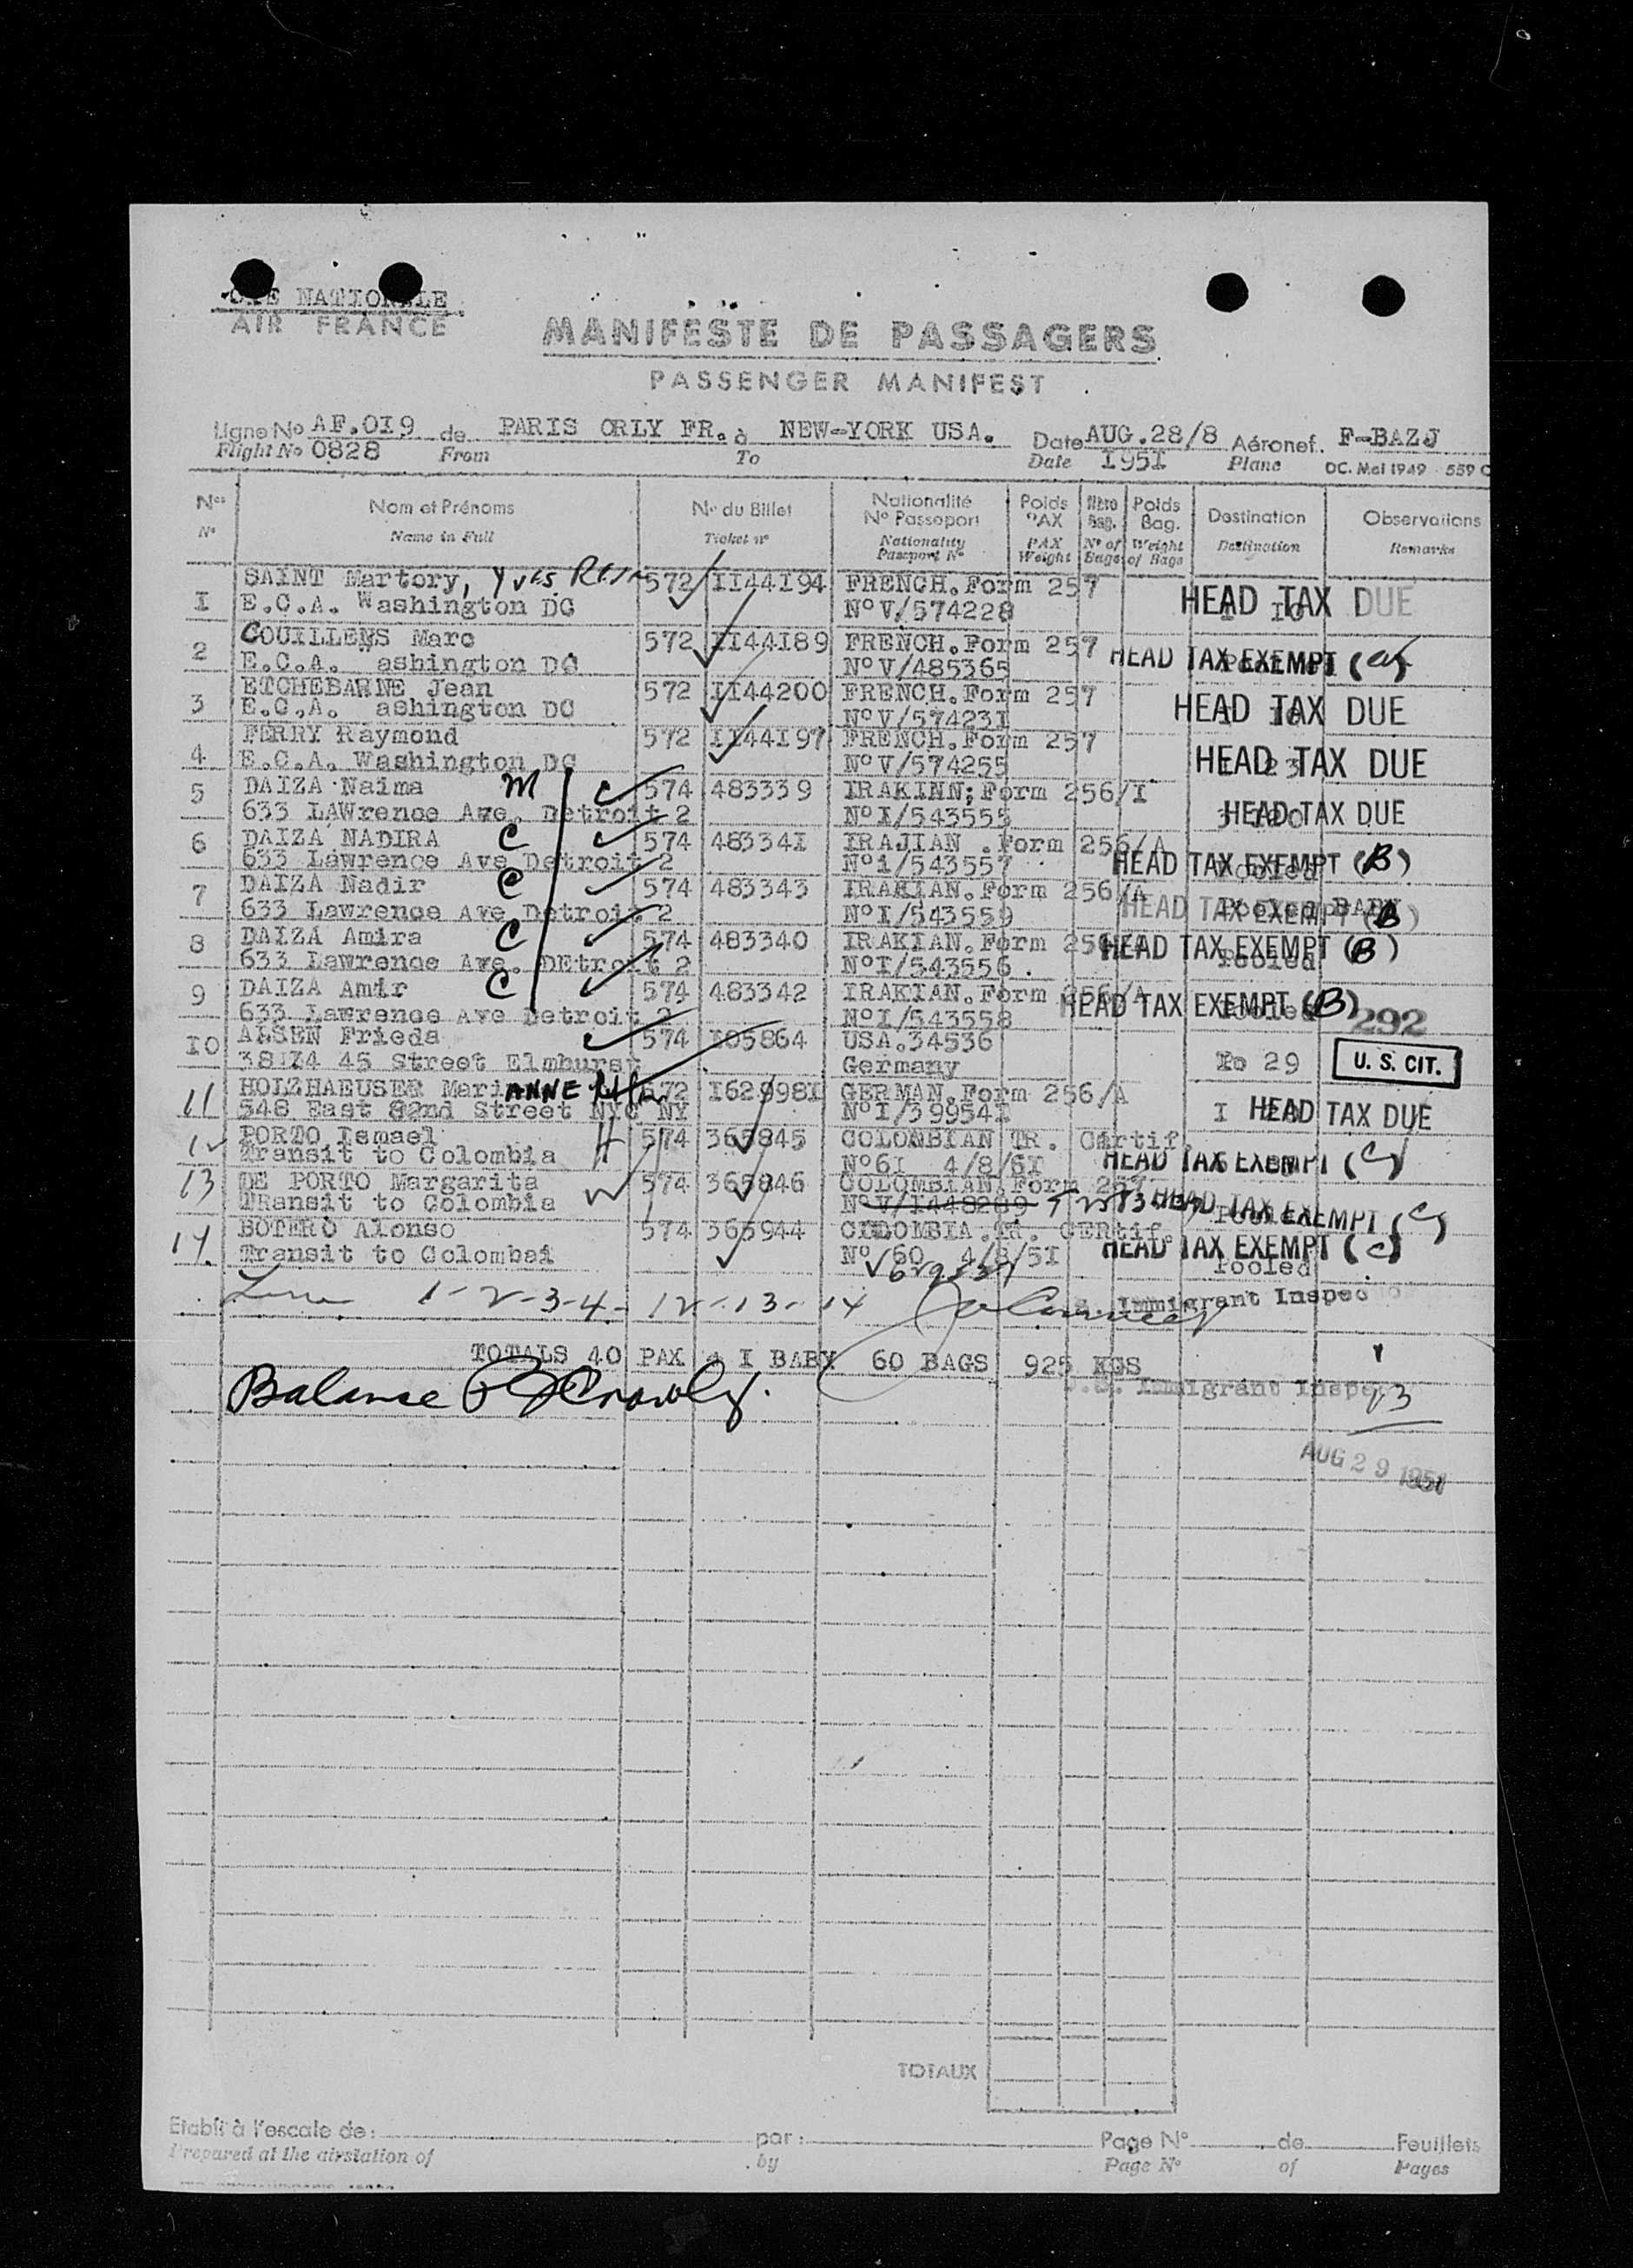 CIE NATIONALE
AIR FRANCE
MANIFESTE DE PASSAGERS
PASSENGER MANIFEST
Ligne No AF.OI9 de PARIS ORLY FR. à NEW-YORK USA. Date AUG.28/8 Aéronef. F-BAZJ
Flight No 0828 From To Date I95I Plane DC. Mai 1949 - 559 C
Nos Nom et Prénoms No du Billet Nationalité No Passeport Poids PAX Nbre Bag. Poids Bag. Destination Observations
No Name in Full Ticket no Nationality Passport No PAX Weight No of Bags Weight of Bags Destination Remarks
SAINT Martory, Yves 572 II44I94 FRENCH.Form 257
I E.C.A. Washington DC NoV/574228 HEAD TAX DUE
COUILLENS Marc 572 II44I89 FRENCH.Form 257
2 E.C.A. ashington DC NoV/485365 HEAD TAX EXEMPT (C)
ETCHEBARNE Jean 572 II44200 FRENCH.Form 257
3 E.C.A. ashington DC NoV/57423I HEAD TAX DUE
FERRY Raymond 572 II44I97 FRENCH.Form 257
4 E.C.A. Washington DC NoV/574255 HEAD TAX DUE
5 DAIZA Naima M C 574 483339 IRAKINN; Form 256/I
633 LAWrence Ave. Detroit 2 NoI/543555 HEAD TAX DUE
6 DAIZA NADIRA C 574 48334I IRAJIAN .Form 256/A
633 Lawrence Ave Detroit 2 No1/543557 HEAD TAX EXEMPT (B)
7 DAIZA Nadir C 574 483343 IRAKIAN.Form 256/A
633 Lawrence Ave Detroit 2 NoI/543559 HEAD TAX EXEMPT (B) BABY
8 DAIZA Amira C 574 483340 IRAKIAN.Form HEAD TAX EXEMPT (B)
633 Lawrence Ave. DEtroit 2 NoI/543556 . Pooled
9 DAIZA Amir C 574 483342 IRAKIAN.Form 256/A
633 Lawrence Ave Detroit 2 NoI/543558 HEAD TAX EXEMPT (B) 292
IO ALSEN Frieda 574 I05864 USA.34536
38I74 45 Street Elmhurst Germany 29 U. S. CIT.
11 HOLZHAEUSER MariANNE 572 I62998I GERMAN.Form 256/A
548 East 82nd Street NYC NY NoI/39954I I HEAD TAX DUE
12 PORTO Ismael H 574 365845 COLOMBIAN TR. Certif.
Transit to Colombia No6I 4/8/6I HEAD TAX EXEMPT (C)
13 DE PORTO Margarita W 574 365846 COLOMBIAN.Form 257
TRansit to Colombia NoV/I448289 HEAD TAX EXEMPT (C)
14. BOTERO Alonso 574 365944 COLOMBIA .TR. CERtif.
Transit to Colombai No 60 4/8/5I HEAD TAX EXEMPT (C)
Pooled
1-2-3-4- 12-13-14 Immigrant Inspec
TOTALS 40 PAX + I BABY 60 BAGS 925 KGS
Balance Immigrant Inspe
AUG 29 1951
TOTAUX
Etabli à l'escale de: par: Page No de Feuillets
Prepared at the airstation of by Page No of Pages